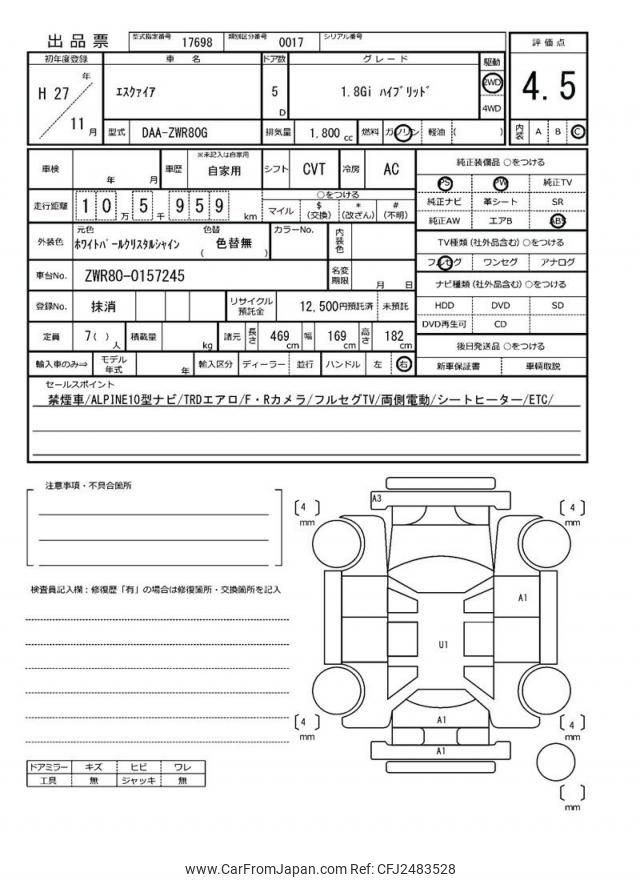 出品票 型式指定番号 17698 類別区分番号 0017 シリアル番号
初年度登録 車名 ドア数 グレード 駆動 評価点
H 27 年 エスクァイア 5 D 1.8Gi ハイブリッド 2WD 4WD 4.5
11 月 型式 DAA-ZWR80G 排気量 1.800 cc 燃料 ガソリン 軽油 ( ) 内装 A B C
車検 年 月 車歴 ※未記入は自家用 自家用 シフト CVT 冷房 AC 純正装備品 ○をつける
PS PW 純正TV
走行距離 1 0 万 5 千 9 5 9 km ○をつける 純正ナビ 革シート SR
マイル $(交換) *(改ざん) #(不明) 純正AW エアB ABS
外装色 元色 ホワイトパールクリスタルシャイン 色替 ( 色替無 ) カラーNo. 内装色 TV種類 (社外品含む) ○をつける
フルセグ ワンセグ アナログ
車台No. ZWR80-0157245 名変期限 月 日 ナビ種類 (社外品含む) ○をつける
登録No. 抹消 リサイクル預託金 12,500円預託済 未預託 HDD DVD SD
DVD再生可 CD
定員 7( ) 人 積載量 kg 諸元 長さ 469 cm 幅 169 cm 高さ 182 cm 後日発送品 ○をつける
輸入車のみ⇒ モデル年式 年 輸入区分 ディーラー 並行 ハンドル 左 右 新車保証書 車輌取説
セールスポイント
禁煙車/ALPINE10型ナビ/TRDエアロ/F・Rカメラ/フルセグTV/両側電動/シートヒーター/ETC/
注意事項・不具合箇所
検査員記入欄:修復歴「有」の場合は修復箇所・交換箇所を記入
A3
[ 4 ] mm
[ 4 ] mm
A1
U1
A1
[ 4 ] mm
A1
[ 4 ] mm
[ ] mm
ドアミラー キズ ヒビ ワレ
工具 無 ジャッキ 無
www.CarFromJapan.com Ref: CFJ2483528